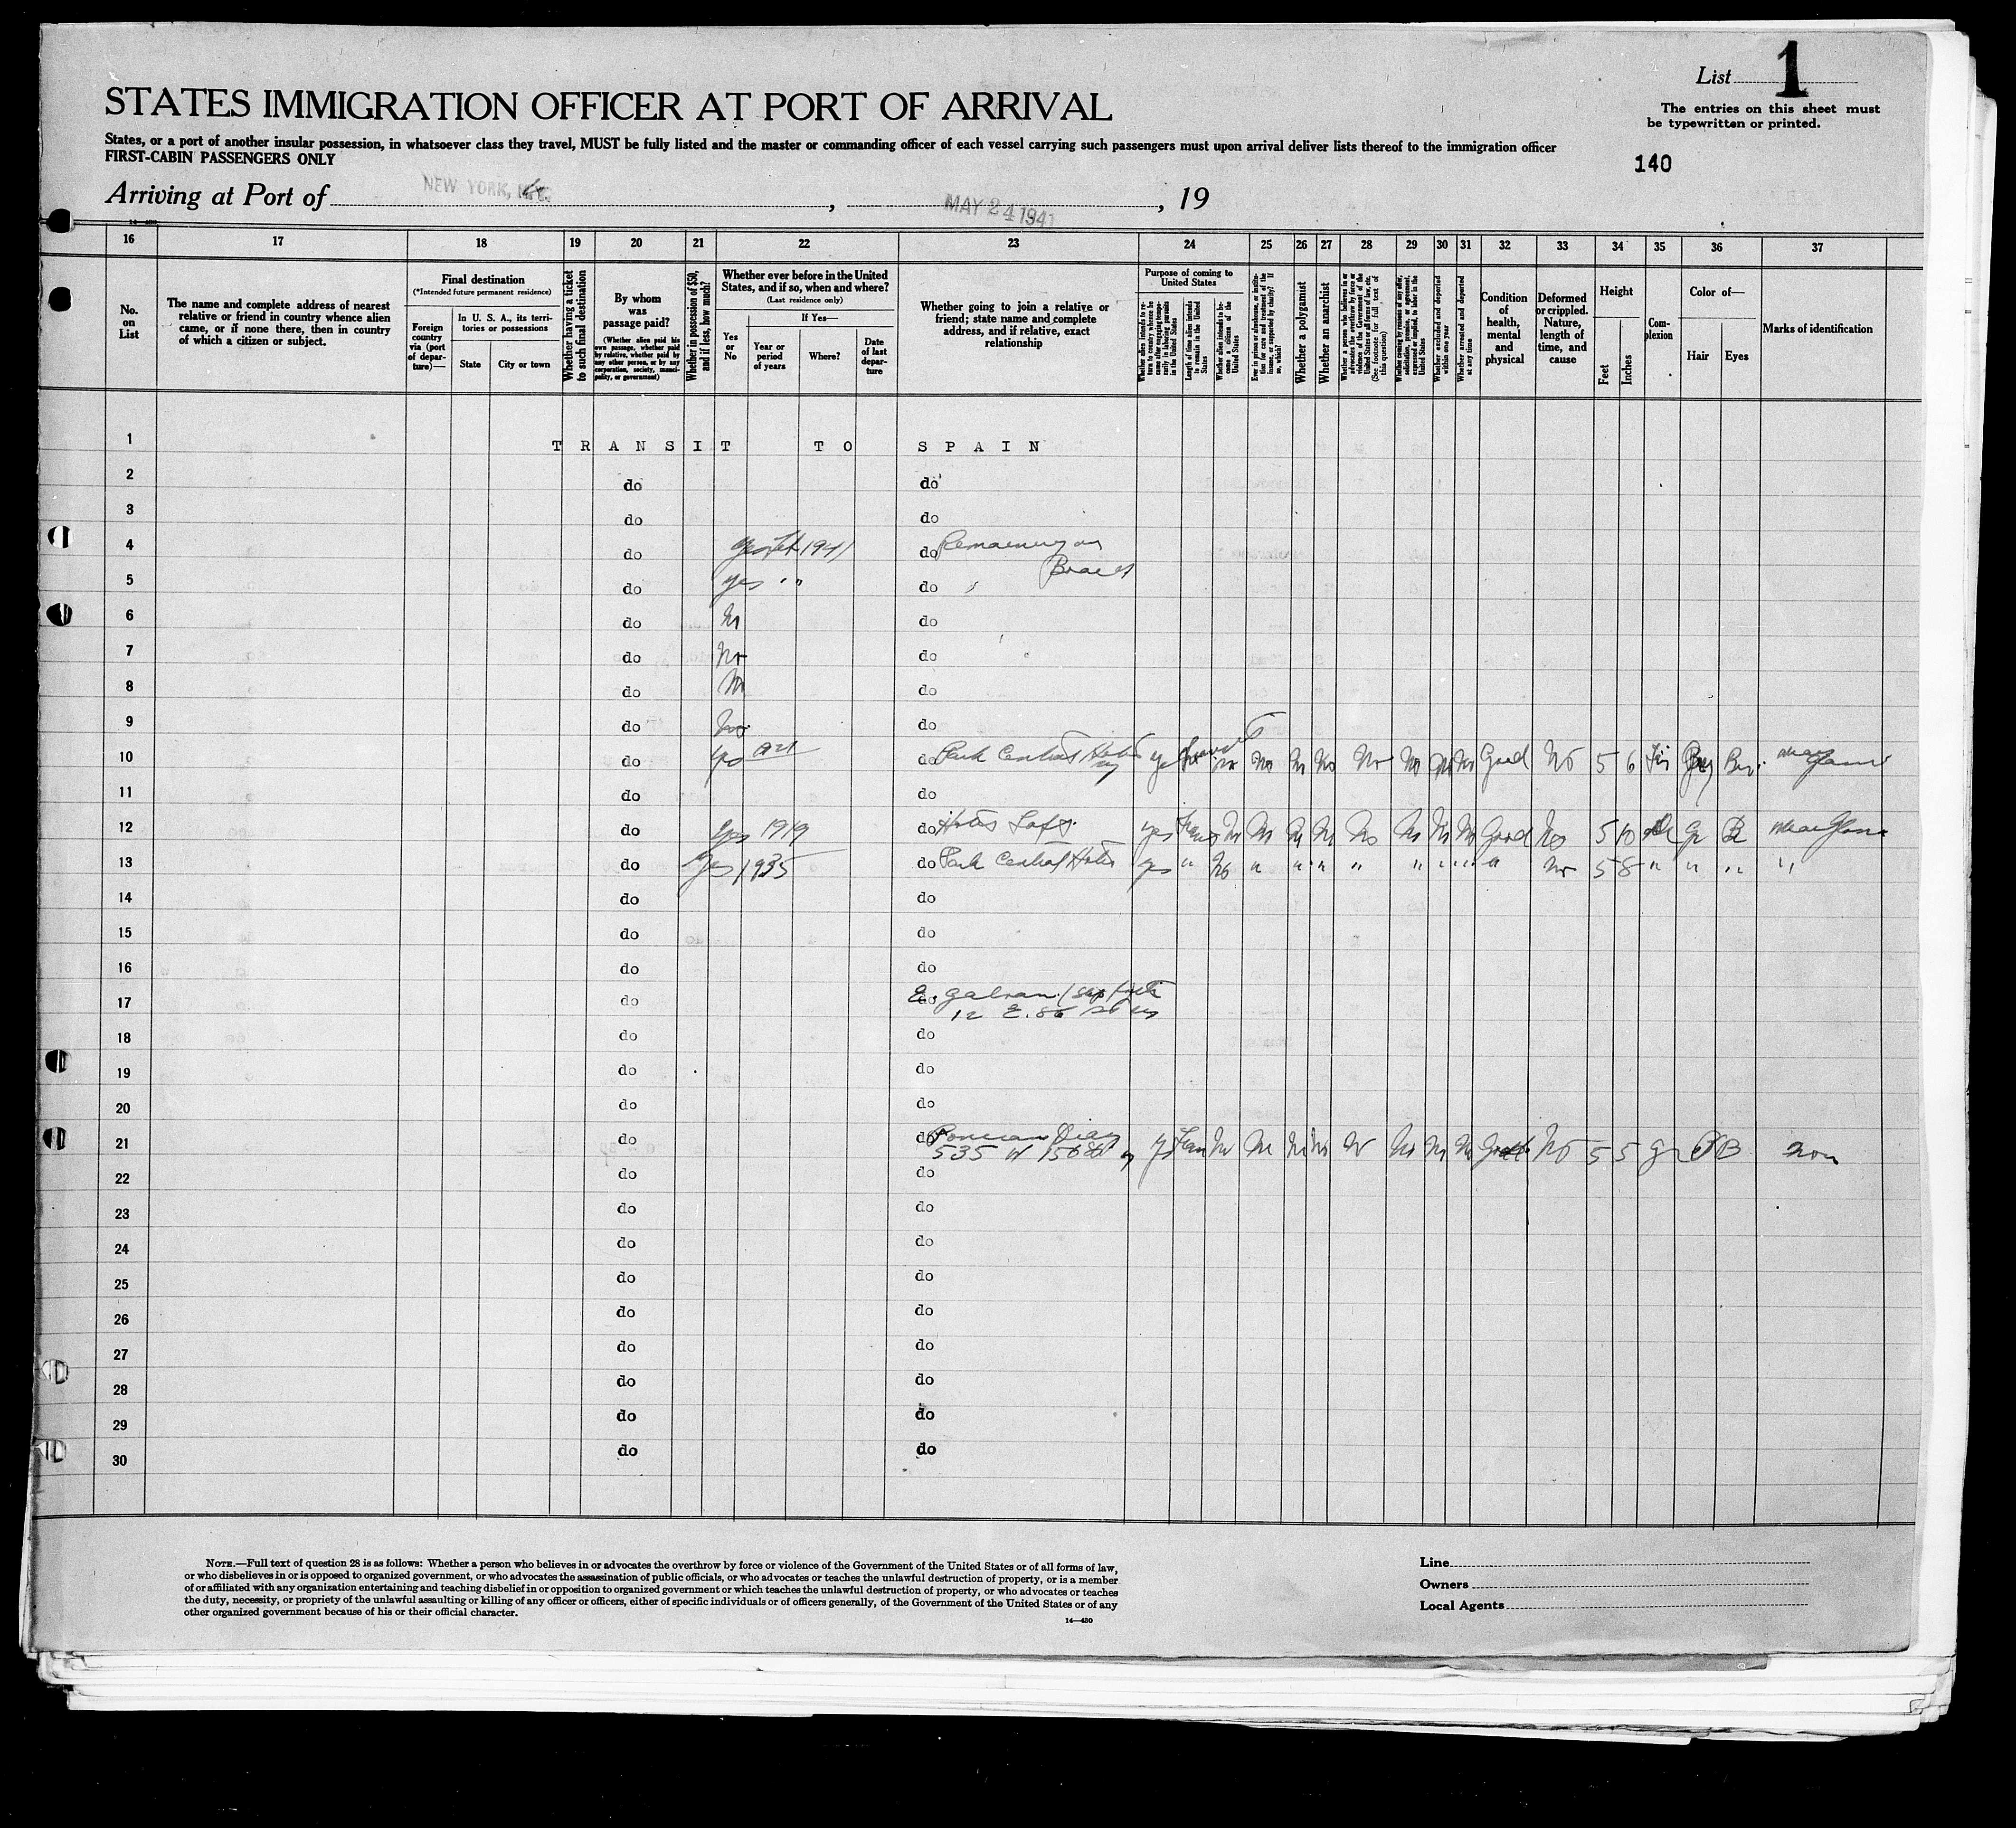 List 1
STATES IMMIGRATION OFFICER AT PORT OF ARRIVAL
The entries on this sheet must
be typewritten or printed.
States, or a port of another insular possession, in whatsoever class they travel, MUST be fully listed and the master or commanding officer of each vessel carrying such passengers must upon arrival deliver lists thereof to the immigration officer
FIRST-CABIN PASSENGERS ONLY
140
Arriving at Port of NEW YORK, , MAY 24 1941, 19
14—430
16 17 18 19 20 21 22 23 24 25 26 27 28 29 30 31 32 33 34 35 36 37
No.
on
List
The name and complete address of nearest
relative or friend in country whence alien
came, or if none there, then in country
of which a citizen or subject.
Final destination
(*Intended future permanent residence)
Foreign
country
via (port
of depar-
ture)—
In U. S. A., its terri-
tories or possessions
State
City or town
Whether having a ticket
to such final destination
By whom
was
passage paid?
(Whether alien paid his
own passage, whether paid
by relative, whether paid by
any other person, or by any
corporation, society, munici-
pality, or government)
Whether in possession of $50,
and if less, how much?
Whether ever before in the United
States, and if so, when and where?
(Last residence only)
Yes
or
No
If Yes—
Year or
period
of years
Where?
Date
of last
depar-
ture
Whether going to join a relative or
friend; state name and complete
address, and if relative, exact
relationship
Purpose of coming to
United States
Whether alien intends to re-
turn to country whence he
came after engaging tempo-
rarily in laboring pursuits
in the United States
Length of time alien intends
to remain in the United
States
Whether alien intends to be-
come a citizen of the
United States
Ever in prison or almshouse, or institu-
tion for care and treatment of the
insane, or supported by charity? If
so, which?
Whether a polygamist
Whether an anarchist
Whether a person who believes in or
advocates the overthrow by force or
violence of the Government of the
United States or all forms of law, etc.
(See footnote for full text of
this question)
Whether coming by reason of any offer,
solicitation, promise, or agreement,
expressed or implied, to labor in the
United States
Whether excluded and deported
within one year
Whether arrested and deported
at any time
Condition
of
health,
mental
and
physical
Deformed
or crippled.
Nature,
length of
time, and
cause
Height
Feet
Inches
Com-
plexion
Color of—
Hair
Eyes
Marks of identification
1 TRANSIT TO SPAIN
2 do do
3 do do
4 do 1941 do Remaining on
Board
5 do yes " " do "
6 do No do
7 do No do
8 do No do
9 do No do
10 do yes do Park Central Hotel No No No No No No No Good No 5 6
11 do do
12 do yes 1919 do Hotel yes No No No No No No No No Good No 5 10
13 do yes 1935 do Park Central Hotel yes " No " " " " " " " " No 5 8 " " " "
14 do do
15 do do
16 do do
17 do do E. Galvan
12 E. 86 St
18 do do
19 do do
20 do do
21 do do Diaz
535 W No No No No No No No No No 5 5
22 do do
23 do do
24 do do
25 do do
26 do do
27 do do
28 do do
29 do do
30 do do
NOTE.—Full text of question 28 is as follows: Whether a person who believes in or advocates the overthrow by force or violence of the Government of the United States or of all forms of law,
or who disbelieves in or is opposed to organized government, or who advocates the assassination of public officials, or who advocates or teaches the unlawful destruction of property, or is a member
of or affiliated with any organization entertaining and teaching disbelief in or opposition to organized government or which teaches the unlawful destruction of property, or who advocates or teaches
the duty, necessity, or propriety of the unlawful assaulting or killing of any officer or officers, either of specific individuals or of officers generally, of the Government of the United States or of any
other organized government because of his or their official character.
14—430
Line
Owners
Local Agents